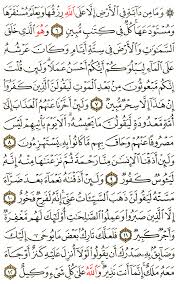 وَمَا مِن دَآبَّةٍ فِي ٱلْأَرْضِ إِلَّا عَلَى ٱللَّهِ رِزْقُهَا وَيَعْلَمُ مُسْتَقَرَّهَا
وَمُسْتَوْدَعَهَا كُلٌّ فِي كِتَٰبٍ مُّبِينٍ ٦ وَهُوَ ٱلَّذِي خَلَقَ
ٱلسَّمَٰوَٰتِ وَٱلْأَرْضَ فِي سِتَّةِ أَيَّامٍ وَكَانَ عَرْشُهُۥ
عَلَى ٱلْمَآءِ لِيَبْلُوَكُمْ أَيُّكُمْ أَحْسَنُ عَمَلًا وَلَئِن قُلْتَ
إِنَّكُم مَّبْعُوثُونَ مِنۢ بَعْدِ ٱلْمَوْتِ لَيَقُولَنَّ ٱلَّذِينَ كَفَرُوٓا۟
إِنْ هَٰذَآ إِلَّا سِحْرٌ مُّبِينٌ ٧ وَلَئِنْ أَخَّرْنَا عَنْهُمُ ٱلْعَذَابَ
إِلَىٰٓ أُمَّةٍ مَّعْدُودَةٍ لَّيَقُولُنَّ مَا يَحْبِسُهُۥٓ أَلَا يَوْمَ يَأْتِيهِمْ لَيْسَ
مَصْرُوفًا عَنْهُمْ وَحَاقَ بِهِم مَّا كَانُوا۟ بِهِۦ يَسْتَهْزِءُونَ ٨
وَلَئِنْ أَذَقْنَا ٱلْإِنسَٰنَ مِنَّا رَحْمَةً ثُمَّ نَزَعْنَٰهَا مِنْهُ إِنَّهُۥ
لَيَـُٔوسٌ كَفُورٌ ٩ وَلَئِنْ أَذَقْنَٰهُ نَعْمَآءَ بَعْدَ ضَرَّآءَ
مَسَّتْهُ لَيَقُولَنَّ ذَهَبَ ٱلسَّيِّـَٔاتُ عَنِّيٓ إِنَّهُۥ لَفَرِحٌ فَخُورٌ ١٠
إِلَّا ٱلَّذِينَ صَبَرُوا۟ وَعَمِلُوا۟ ٱلصَّٰلِحَٰتِ أُو۟لَٰٓئِكَ لَهُم مَّغْفِرَةٌ
وَأَجْرٌ كَبِيرٌ ١١ فَلَعَلَّكَ تَارِكٌۢ بَعْضَ مَا يُوحَىٰٓ إِلَيْكَ
وَضَآئِقٌۢ بِهِۦ صَدْرُكَ أَن يَقُولُوا۟ لَوْلَآ أُنزِلَ عَلَيْهِ كَنزٌ أَوْ جَآءَ
مَعَهُۥ مَلَكٌ إِنَّمَآ أَنتَ نَذِيرٌ وَٱللَّهُ عَلَىٰ كُلِّ شَيْءٍ وَكِيلٌ ١٢